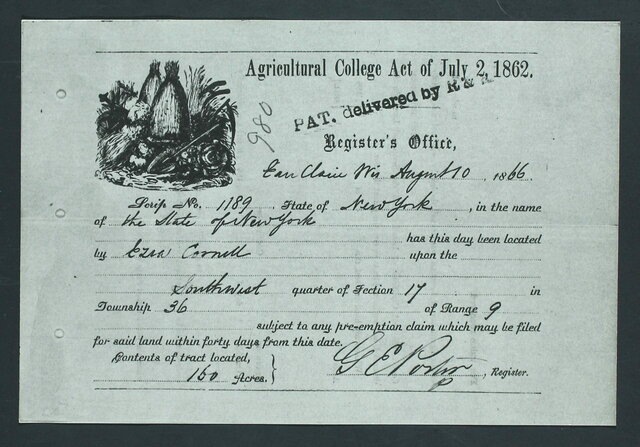 Agricultural College Act of July 2, 1862.
PAT. delivered by R &
980
Register's Office,
Eau Claire Wis August 10, 1866.
Scrip No. 1189 State of New York, in the name
of the State of New York
has this day been located
by Ezra Cornell upon the
Southwest quarter of Section 17 in
Township 36 of Range 9
subject to any pre-emption claim which may be filed
for said land within forty days from this date.
Contents of tract located,
160 Acres.
G E Porter, Register.